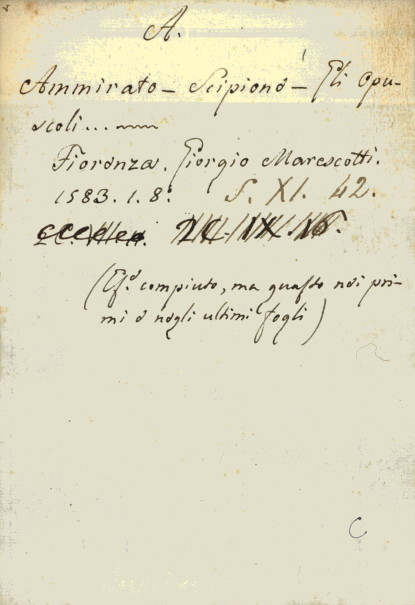 A.
Ammirato - Scipione - Gli Opu-
scoli...
Fiorenza. Giorgio Marescotti.
1583. 1. 8º.
S. XI. 42.
IX
(Es.º compiuto, ma guasto nei pri-
mi e negli ultimi fogli)
C